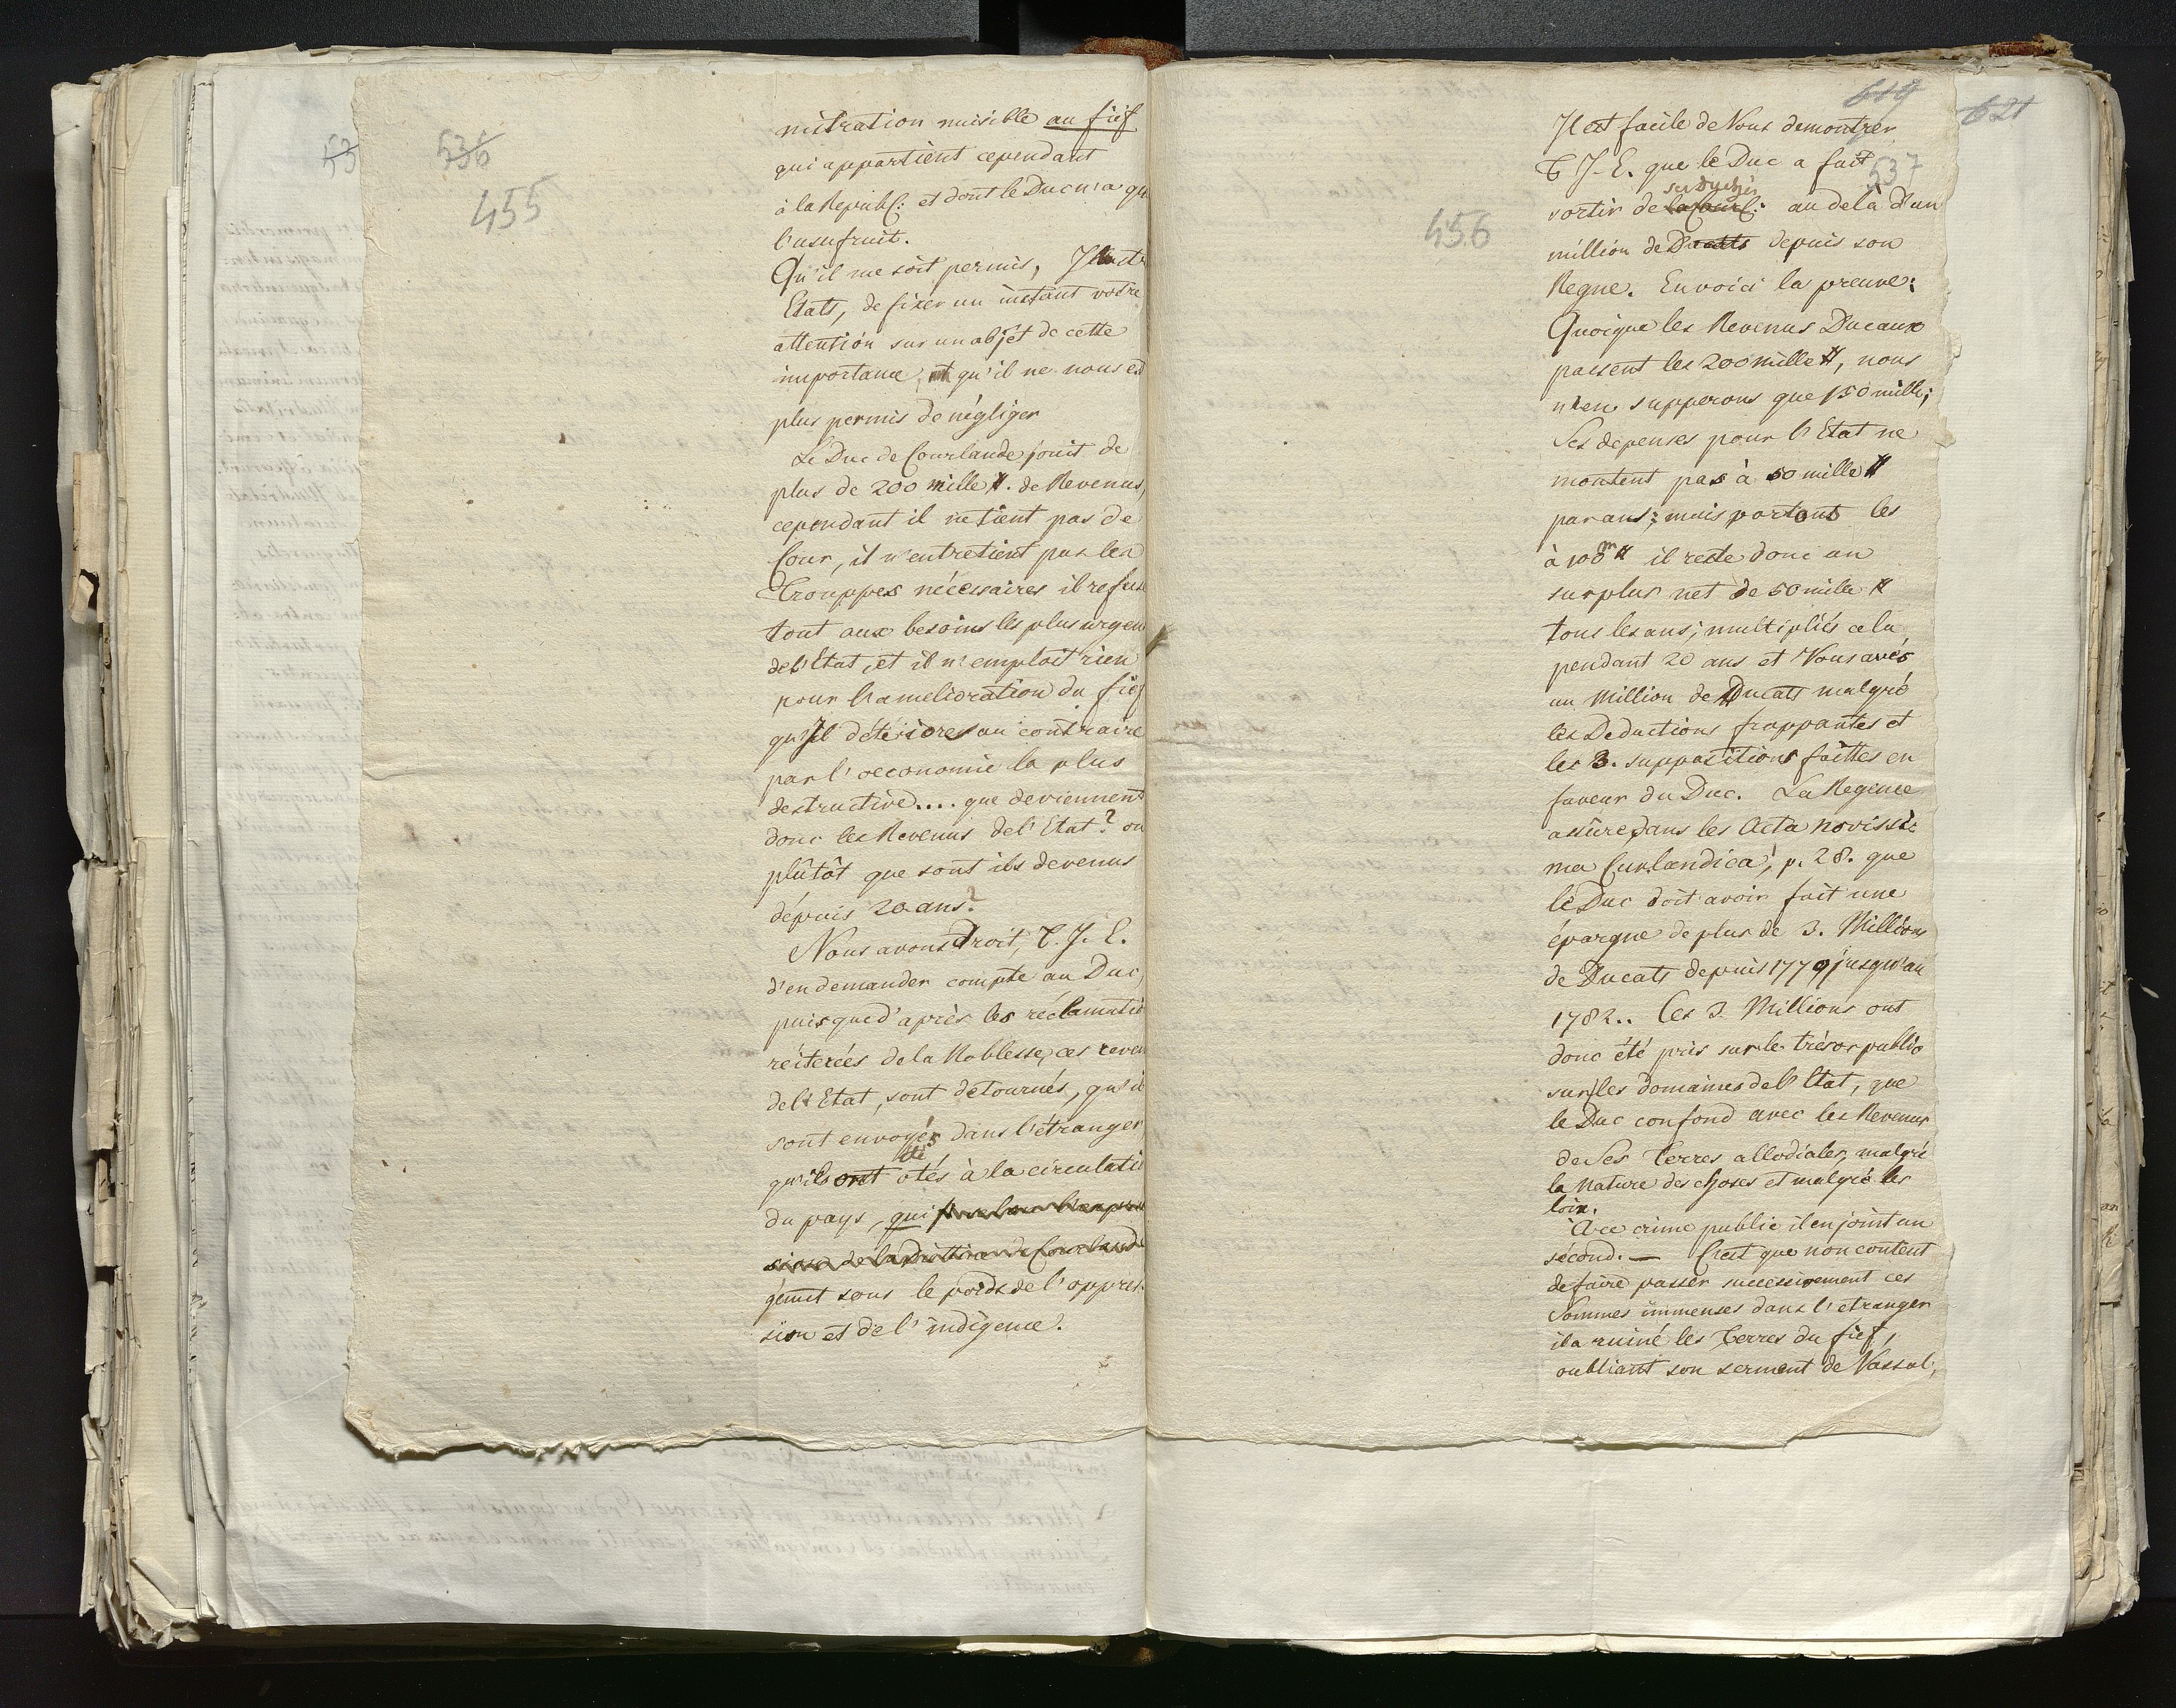 53
536
455
nistration nuisible au fief
qui appartient cependant
à la Republ: et dont le Duc n'a qu
l'usufruit.
Qu'il me soit permis, Illustr
Etats, de fixer un instant votre
attention sur un objet de cette
importance, et qu'il ne nous est
plus permis de négliger
Le Duc de Courlande jouit de
plus de 200 mille #. de Revenus,
cependant il ne tient pas de
Cour, il n'entretient pas les
Trouppes nécessaires il refuse
tout aux besoins les plus urgen
de l'Etat, et il n'emploit rien
pour l'amelioration du fief
qu'Il détériore au contraire
par l'oeconomie la plus
destructive.... que deviennent
donc les Revenus de l'Etat? ou
plûtôt que sont ils devenus
dépuis 20 ans?
Nous avons Droit, T. J. E.
d'en demander compte au Duc,
puisque d'après les réclamatio
réiterées de la Noblesse, ces reven
de l'Etat, sont détournés, qu'il
sont envoyés dans l'étranger
qu'ils ont otés à la circulatio
du pays, qui
gémit sous le poids de l'oppres-
sion et de l'indigence.
619
621
537
456
Il est facile de Vous demontrer
T J. E. que le Duc a fait
ses duchés
sortir de la Courl: au delà d'un
million de Ducats depuis son
Regne. En voici la preuve:
Quoique les Revenus Ducaux
passent les 200 mille #, nous
n'en supperons que 150 mille;
Ses depenses pour l'Etat ne
montent pas à 50 mille #
par ans; mais portons les
à 100 m # il reste donc un
surplus net de 50 mille #
tous les ans; multipliés cela
pendant 20 ans et Vous avés
un Million de Ducats malgré
les Deductions frappantes et
les 3. suppositions faittes en
faveur du Duc. La Regence
assûre dans les Acta novissi-
ma Curlandica, p. 28. que
le Duc doit avoir fait une
épargne de plus de 3. Millions
de Ducats depuis 1770 jusqu'au
1782.. Ces 3. Millions ont
donc été pris sur le trésor public
sur les domaines de l'Etat, que
le Duc confond avec les Revenus
de Ses Terres allodiales, malgré
la Nature des choses et malgré les
loix.
A ce crime public il en joint un
sécond. — C'est que non content
de faire passer successivement ces
Sommes immenses dans l'etranger
il a ruiné les Terres du fief,
oubliant son serment de Vassal,